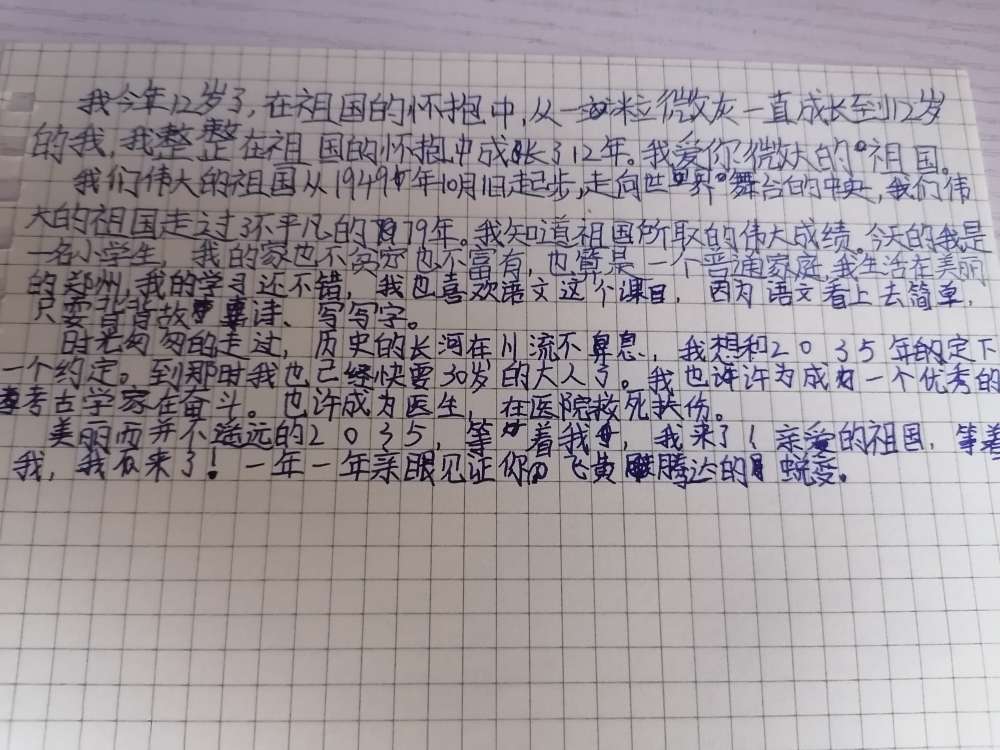 我今年12岁了,在祖国的怀抱中,从一粒微灰一直成长到12岁
的我,我整整在祖国的怀抱中成长了12年。我爱你微大的祖国。
我们伟大的祖国从1949年10月1日起步,走向世界舞台的中央,我们伟
大的祖国走过了不平凡的79年。我知道祖国所取的伟大成绩。今天的我是
一名小学生,我的家也不贫穷也不富有,也算是一个普通家庭,我生活在美丽
的郑州,我的学习还不错,我也喜欢语文这个课目,因为语文看上去简单,
只要背背故事诗、写写字。
时光匆匆的走过,历史的长河在川流不息,我想和2035年的定下
一个约定。到那时我也已经快要30岁的大人了。我也许许为成为一个优秀的
考古学家在奋斗。也许成为医生,在医院救死扶伤。
美丽而并不遥远的2035,等着我,我来了!亲爱的祖国,等着
我,我来了!一年一年亲眼见证你飞黄腾达的蜕变。